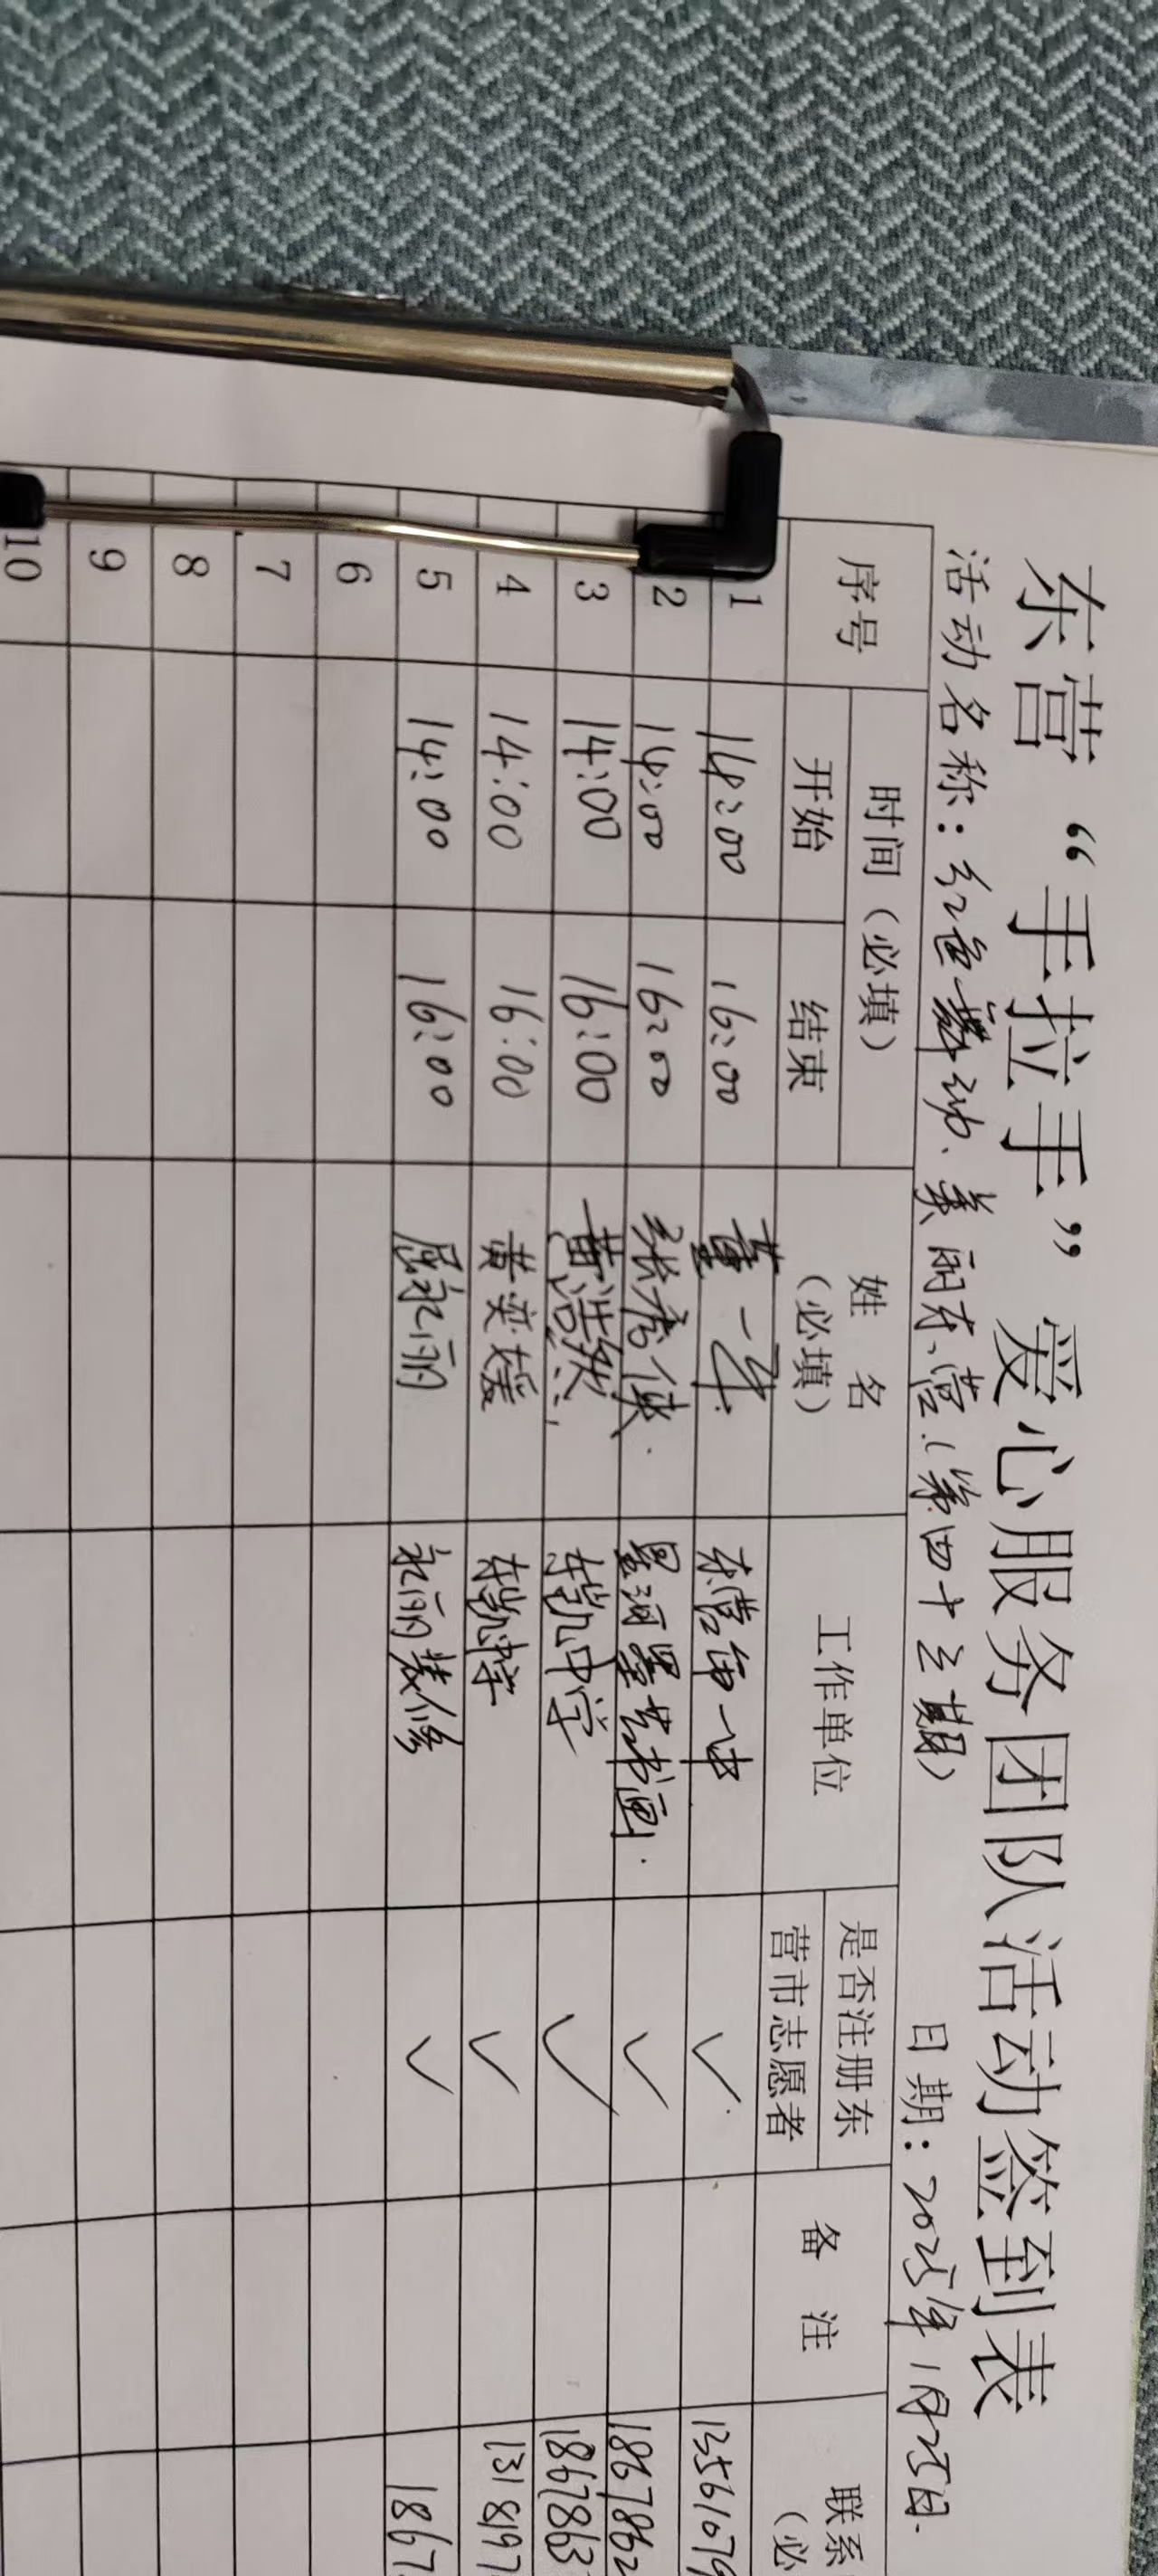 东营“手拉手”爱心服务团队活动签到表
活动名称：红色舞动、美丽东营（第四十三期） 日期：2025年1月25日.
序号 时间（必填） 姓 名（必填） 工作单位 是否注册东营市志愿者 备 注 联系 （必
开始 结束
1 14:00 16:00 董一 东营市一中 ✓ 1356167
2 14:00 16:00 张秀侠. 墨润墨艺书画. ✓ 1867862
3 14:00 16:00 黄浩然 东凯中学 ✓ 1867863
4 14:00 16:00 黄奕媛 东凯中学 ✓ 1318197
5 14:00 16:00 屈永丽 永丽装修 ✓ 1867
6
7
8
9
10